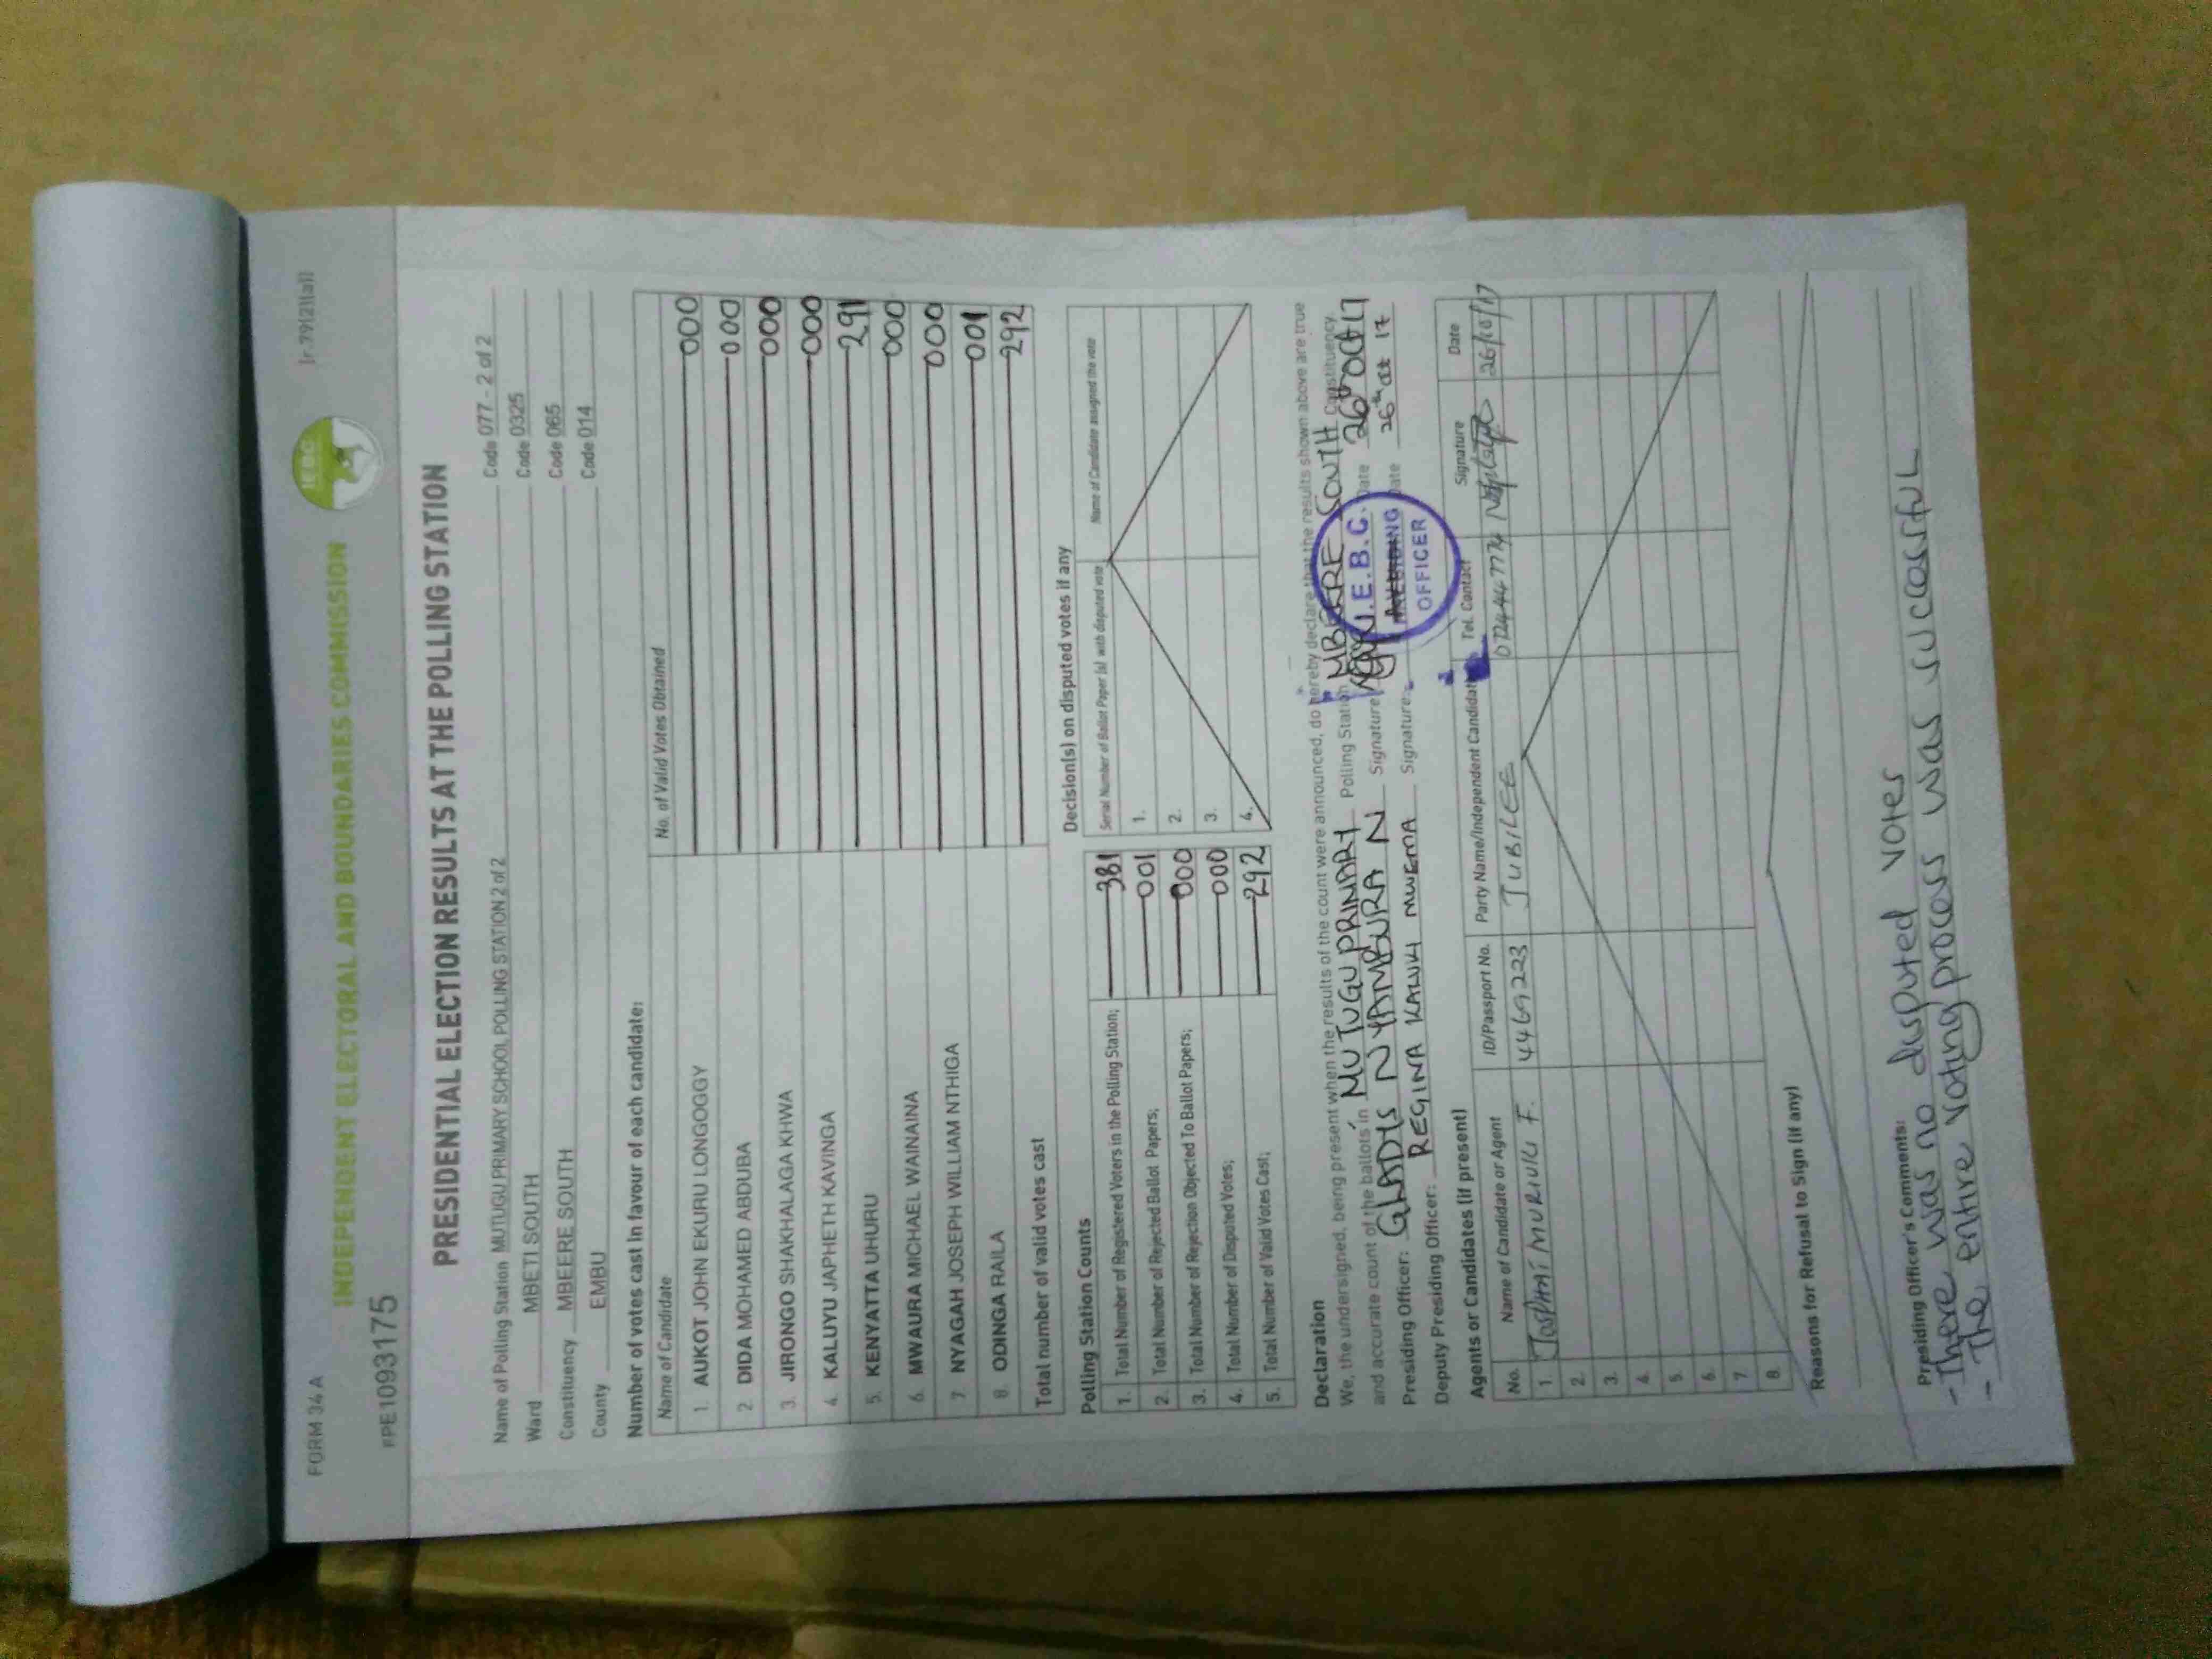 FORM 34 A
[r.79(2)(a)]
IEBC
INDEPENDENT ELECTORAL AND BOUNDARIES COMMISSION
PPE1093175
PRESIDENTIAL ELECTION RESULTS AT THE POLLING STATION
Name of Polling Station MUTUGU PRIMARY SCHOOL POLLING STATION 2 of 2 Code 077 - 2 of 2
Ward MBETI SOUTH Code 0325
Constituency MBEERE SOUTH Code 065
County EMBU Code 014
Number of votes cast in favour of each candidate:
Name of Candidate No. of Valid Votes Obtained
1. AUKOT JOHN EKURU LONGOGGY 000
2. DIDA MOHAMED ABDUBA 000
3. JIRONGO SHAKHALAGA KHWA 000
4. KALUYU JAPHETH KAVINGA 000
5. KENYATTA UHURU 291
6. MWAURA MICHAEL WAINAINA 000
7. NYAGAH JOSEPH WILLIAM NTHIGA 000
8. ODINGA RAILA 001
Total number of valid votes cast 292
Polling Station Counts
1. Total Number of Registered Voters in the Polling Station; 381
2. Total Number of Rejected Ballot Papers; 001
3. Total Number of Rejection Objected To Ballot Papers; 000
4. Total Number of Disputed Votes; 000
5. Total Number of Valid Votes Cast; 292
Decision(s) on disputed votes if any
Serial Number of Ballot Paper (s) with disputed vote Name of Candidate assigned the vote
1.
2.
3.
4.
Declaration
We, the undersigned, being present when the results of the count were announced, do hereby declare that the results shown above are true
and accurate count of the ballots in MUTUGU PRIMARY Polling Station MBEERE SOUTH Constituency
Presiding Officer: GLADYS NYAMBURA N Signature Date 26th Oct 17
Deputy Presiding Officer: REGINA KALUKI MWEMA Signature: Date 26th Oct 17
I.E.B.C.
PRESIDING
OFFICER
Agents or Candidates (if present)
No. Name of Candidate or Agent ID/Passport No. Party Name/Independent Candidate Tel. Contact Signature Date
1. MURIUKI F. 4469223 JUBILEE 26/10/17
2.
3.
4.
5.
6.
7.
8.
Reasons for Refusal to Sign (if any)
Presiding Officer's Comments:
- There was no disputed votes
- The entire voting process was successful